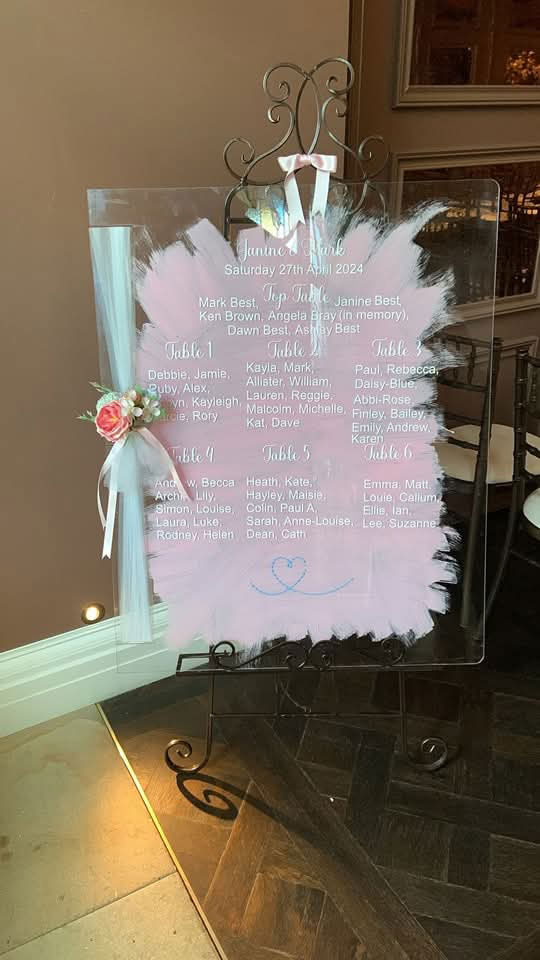 Janine & Mark
Saturday 27th April 2024
Top Table
Mark Best, Janine Best,
Ken Brown, Angela Bray (in memory),
Dawn Best, Ashley Best
Table 1
Debbie, Jamie,
Ruby, Alex,
Kayleigh,
Rory
Table 2
Kayla, Mark,
Allister, William,
Lauren, Reggie,
Malcolm, Michelle,
Kat, Dave
Table 3
Paul, Rebecca,
Daisy-Blue,
Abbi-Rose
Finley, Bailey,
Emily, Andrew,
Karen
Table 4
Andrew, Becca
Archie, Lily,
Simon, Louise,
Laura, Luke,
Rodney, Helen
Table 5
Heath, Kate,
Hayley, Maisie,
Colin, Paul A,
Sarah, Anne-Louise,
Dean, Cath
Table 6
Emma, Matt,
Louie, Callum,
Ellie, Ian,
Lee, Suzanne